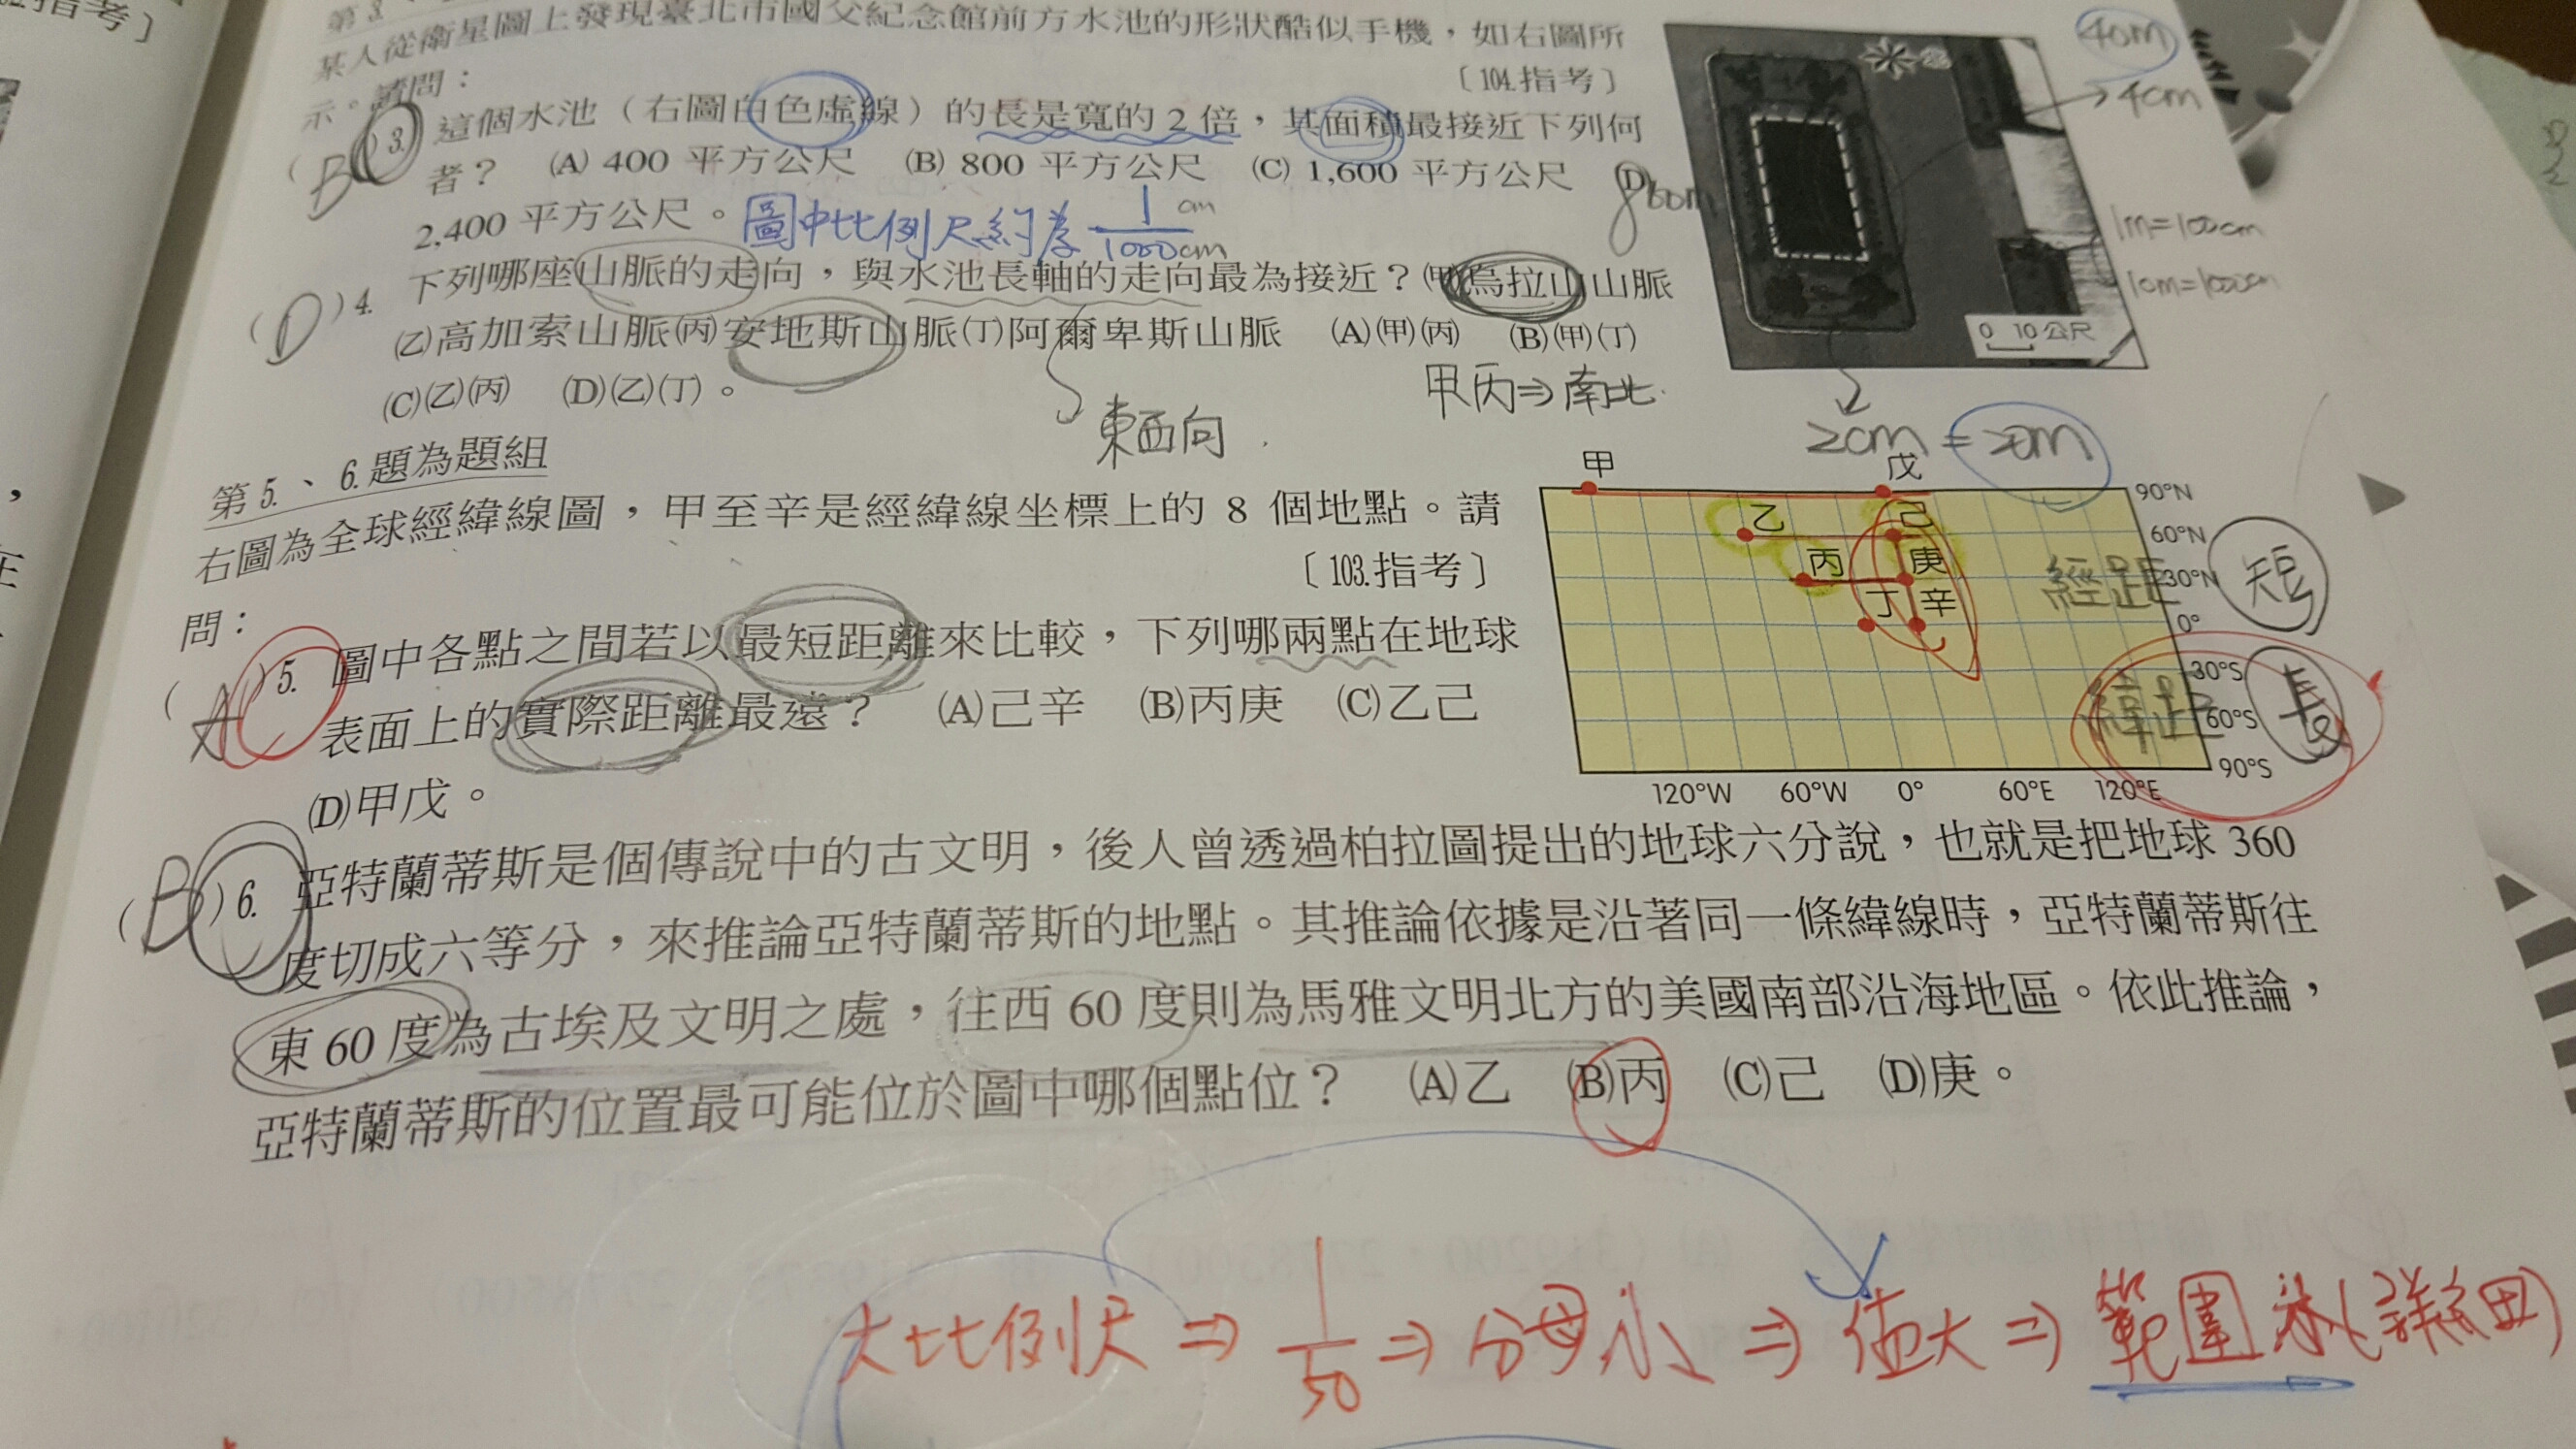 指考〕
第3.、
某人從衛星圖上發現臺北市國父紀念館前方水池的形狀酷似手機，如右圖所
示。請問：
〔104.指考〕
(B)3. 這個水池（右圖白色虛線）的長是寬的2倍，其面積最接近下列何
者？ (A) 400 平方公尺 (B) 800 平方公尺 (C) 1,600 平方公尺 (D)
2,400 平方公尺。
圖中比例尺約為 1cm/1000cm
40m
4cm
80m
1m=100cm
10m=1000cm
0 10公尺
2cm = 20m
(D)4. 下列哪座山脈的走向，與水池長軸的走向最為接近？(甲)烏拉山山脈
(乙)高加索山脈(丙)安地斯山脈(丁)阿爾卑斯山脈 (A)(甲)(丙) (B)(甲)(丁)
(C)(乙)(丙) (D)(乙)(丁)。
甲丙⇒南北
東西向
第5.、6.題為題組
右圖為全球經緯線圖，甲至辛是經緯線坐標上的 8 個地點。請
問：
〔103.指考〕
(A)5. 圖中各點之間若以最短距離來比較，下列哪兩點在地球
表面上的實際距離最遠？ (A)己辛 (B)丙庚 (C)乙己
(D)甲戊。
甲 戊
90°N
乙 己
60°N
丙 庚
30°N
經距 短
丁 辛
0°
30°S
緯距 長
60°S
90°S
120°W 60°W 0° 60°E 120°E
(B)6. 亞特蘭蒂斯是個傳說中的古文明，後人曾透過柏拉圖提出的地球六分說，也就是把地球 360
度切成六等分，來推論亞特蘭蒂斯的地點。其推論依據是沿著同一條緯線時，亞特蘭蒂斯往
東 60 度為古埃及文明之處，往西 60 度則為馬雅文明北方的美國南部沿海地區。依此推論，
亞特蘭蒂斯的位置最可能位於圖中哪個點位？ (A)乙 (B)丙 (C)己 (D)庚。
大比例尺 ⇒ 1/50 ⇒ 分母小 ⇒ 值大 ⇒ 範圍小(詳細)